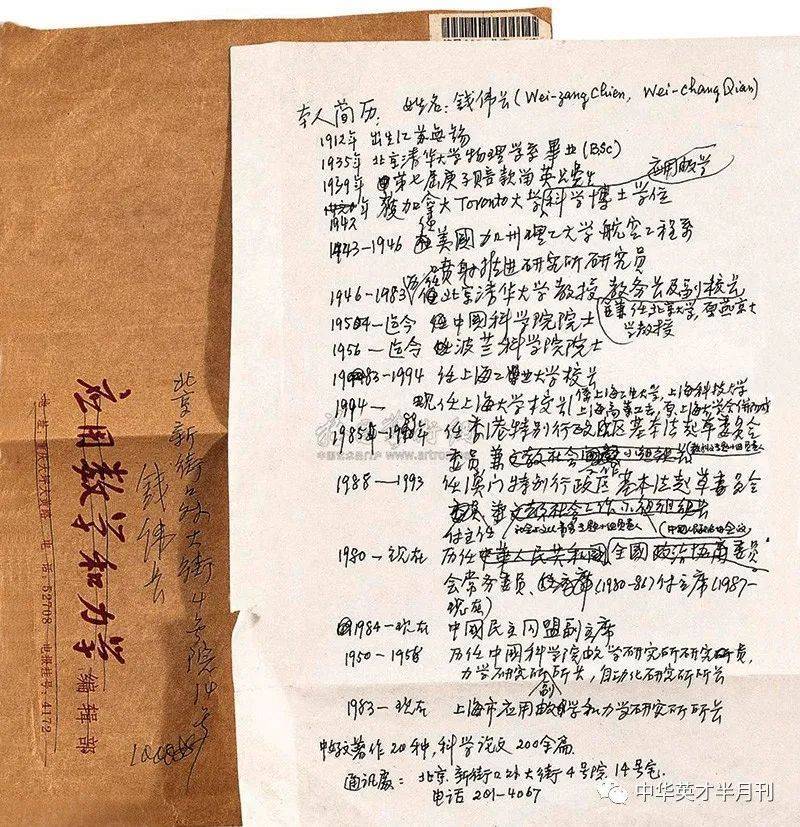 本人简历: 姓名:钱伟长(Wei-zang Chien, Wei-chang Qian)
1912年 出生江苏无锡
1935年 北京清华大学物理学系毕业(BSc)
1939年 第七届庚子赔款留英公费生
应用数学
1942年 获加拿大Toronto大学科学博士学位
1943-1946 美国加州理工大学航空工程系
喷射推进研究所研究员
1946-1983 历任北京清华大学教授 教务长及副校长
兼任北京大学,原燕京大学教授
1954-迄今 任中国科学院院士
1956-迄今 波兰科学院院士
1983-1994 任上海工业大学校长
1994- 现任上海大学校长
1985- 任香港特别行政区基本法起草委员会
委员
1988-1993 任澳门特别行政区基本法起草委员会
付主任
1980-现在 历任中华人民共和国全国政治协商委员
会常务委员、 (1980-86)付主席(1987-
现在)
1984-现在 中国民主同盟副主席
1950-1958 历任中国科学院数学研究所研究员,
力学研究所副所长,自动化研究所所长
1983-现在 上海市应用数学和力学研究所所长
中文著作20种,科学论文200余篇
通讯处: 北京新街口外大街4号院14号宅
电话 201-4067
北京新街口外大街4号院14号
钱伟长
应用数学和力学 编辑部
电话:52708 电报挂号:4172
中华英才半月刊